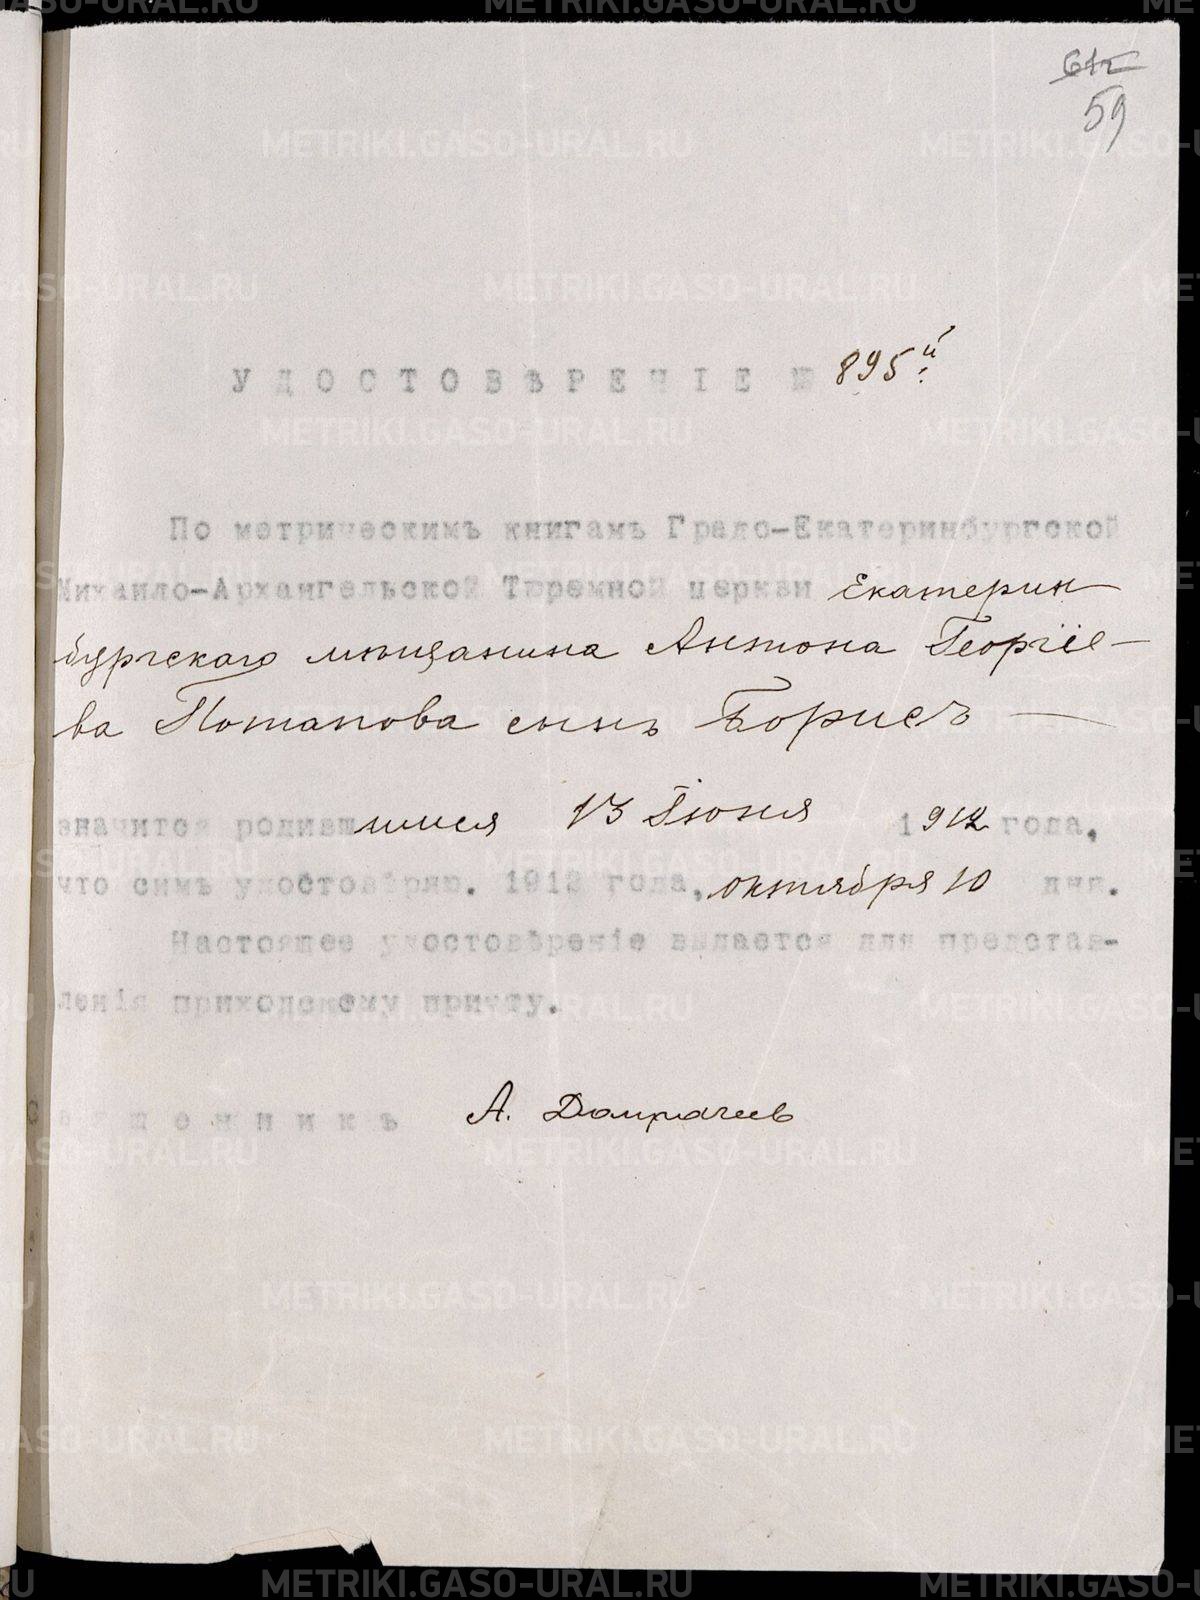 61
59
УДОСТОВѢРЕНІЕ № 895й
По метрическимъ книгамъ Градо-Екатеринбургской
Михаило-Архангельской Тюремной церкви Екатерин
бургскаго мѣщанина Антона Георгіе-
ва Потапова сынъ Борисъ —
значится родившимся 13 Іюня 1912 года,
что симъ удостовѣряю. 1912 года, октября 10 дня.
Настоящее удостовѣреніе выдается для представ-
ленія приходскому причту.
Священникъ А. Домрачеев
METRIKI.GASO-URAL.RU